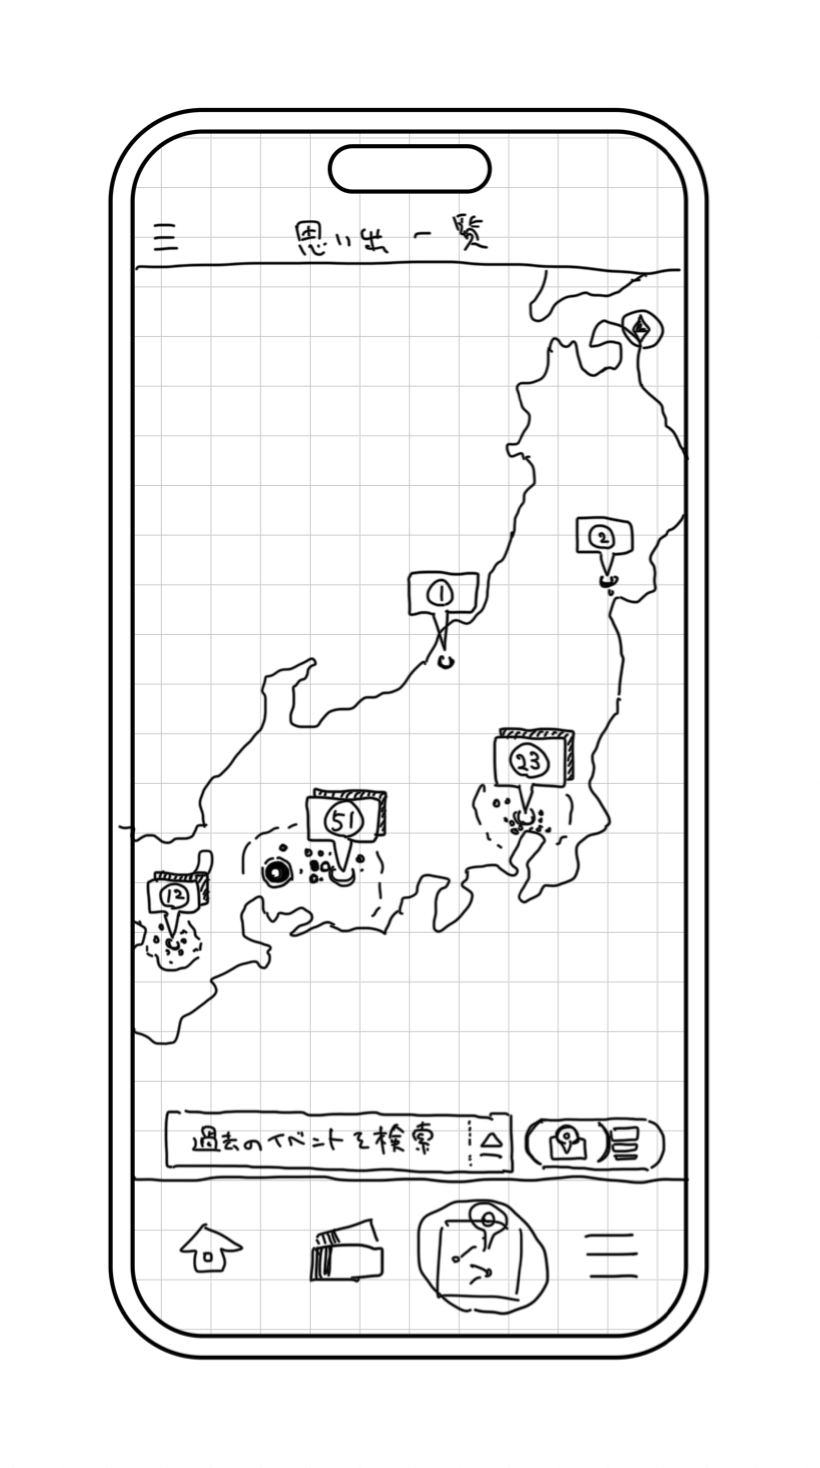 思い出一覧
2
1
23
51
12
過去のイベントを検索